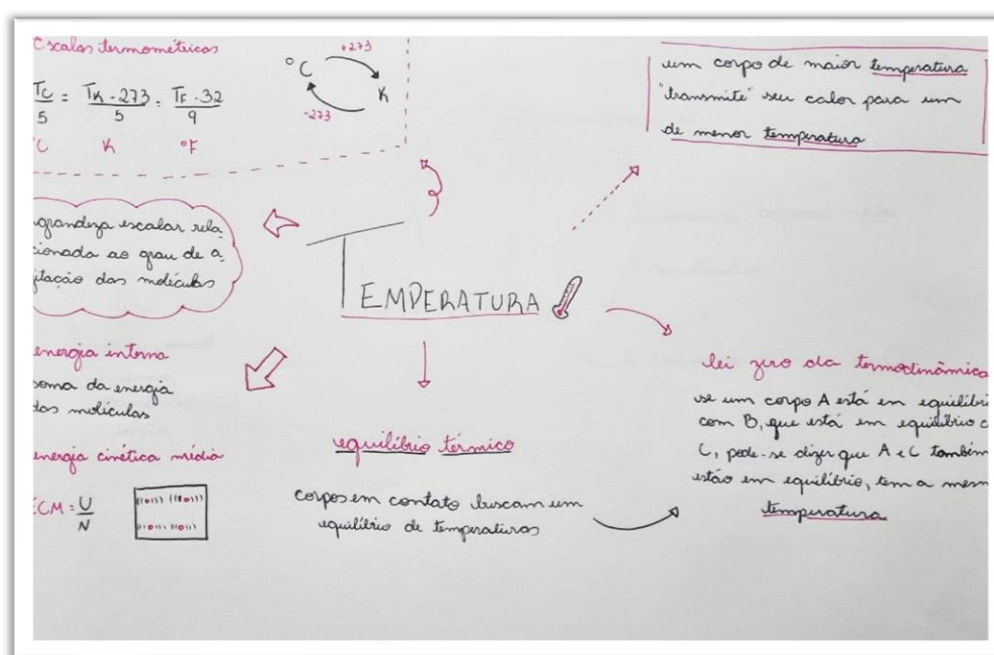 Escalas termométricas
Tc/5 = TK - 273/5 = TF - 32/9
°C K °F
+273
°C
K
-273
um corpo de maior temperatura
"transmite" seu calor para um
de menor temperatura
grandeza escalar rela-
cionada ao grau de a-
gitação das moléculas
TEMPERATURA
energia interna
soma da energia
das moléculas
energia cinética média
ECM = U/N
equilíbrio térmico
corpos em contato buscam um
equilíbrio de temperaturas
lei zero da termodinâmica
se um corpo A está em equilíbri
com B, que está em equilíbrio c
C, pode-se dizer que A e C também
estão em equilíbrio, tem a mesm
temperatura